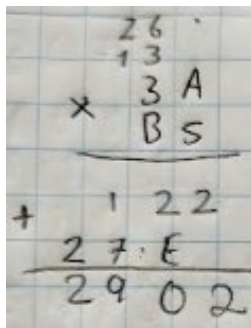 26
13
3 A
× B 5
1 2 2
+ 2 7 · E
2 9 0 2